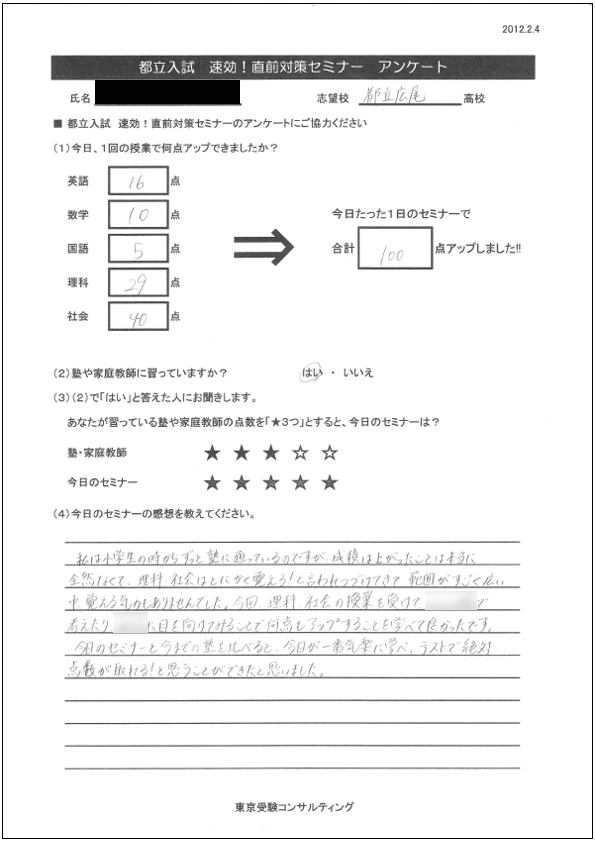 2012.2.4
都立入試 速効!直前対策セミナー アンケート
氏名 志望校 都立広尾 高校
■ 都立入試 速効!直前対策セミナーのアンケートにご協力ください
(1)今日、1回の授業で何点アップできましたか?
英語 16 点
数学 10 点
国語 5 点
理科 29 点
社会 40 点
今日たった1日のセミナーで
合計 100 点アップしました!!
(2)塾や家庭教師に習っていますか? はい ・ いいえ
(3)(2)で「はい」と答えた人にお聞きします。
あなたが習っている塾や家庭教師の点数を「★3つ」とすると、今日のセミナーは?
塾・家庭教師 ★ ★ ★ ☆ ☆
今日のセミナー ★ ★ ★ ★ ★
(4)今日のセミナーの感想を教えてください。
私は小学生の時からずっと塾に通っているのですが、成績は上がったことは本当に
全然なくて、理科、社会はとにかく覚えろ!と言われつづけてきて 範囲がすごく広い
中、覚える気力もありませんでした。今回、理科、社会の授業を受けて で
考えたり に目を向けてみることで何点もアップすることを学べて良かったです。
今日のセミナーと今までの塾を比べると、今日が一番気楽に学べ、テストで絶対
点数が取れる!と思うことができたと思いました。
東京受験コンサルティング